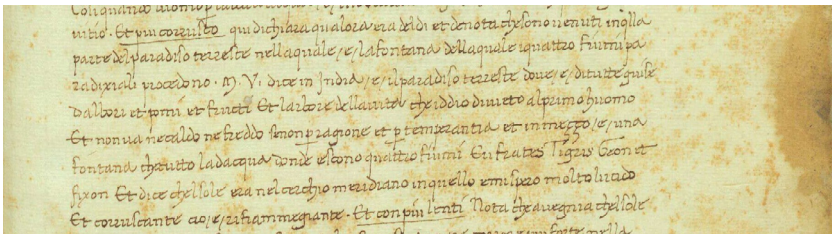 uitio. Et piu corrusco qui dichiara qualora era deldi et denota che sono uenuti inqlla
parte del paradiso terreste nellaquale /e/ la fontana dellaquale iquattro fiumi pa
radixiali procedono. M. V. dice in India /e/ il paradiso terreste doue /e/ ditutte guise
dalbori et pomi et fructi Et larbore dellauita che iddio diuieto alprimo huomo
Et non ua ne caldo ne freddo senon p ragione et p temperantia et in mezzo /e/ una
fontana che tutto ladacqua donde escono quattro fiumi Eufrates Tigris Geon et
fixon Et dice chelsole era nel cerchio meridiano inquello emispero molto lucido
Et corruscante cio /e/ rifiammegiante. Et con piu lenti Nota che auegnia chelsole